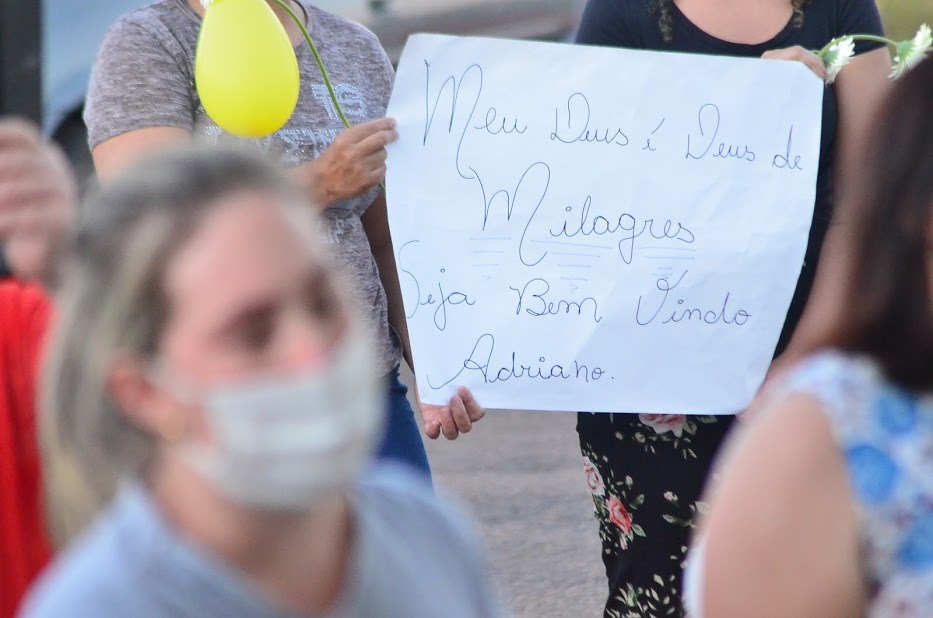 Meu Deus é Deus de
Milagres
Seja Bem Vindo
Adriano.